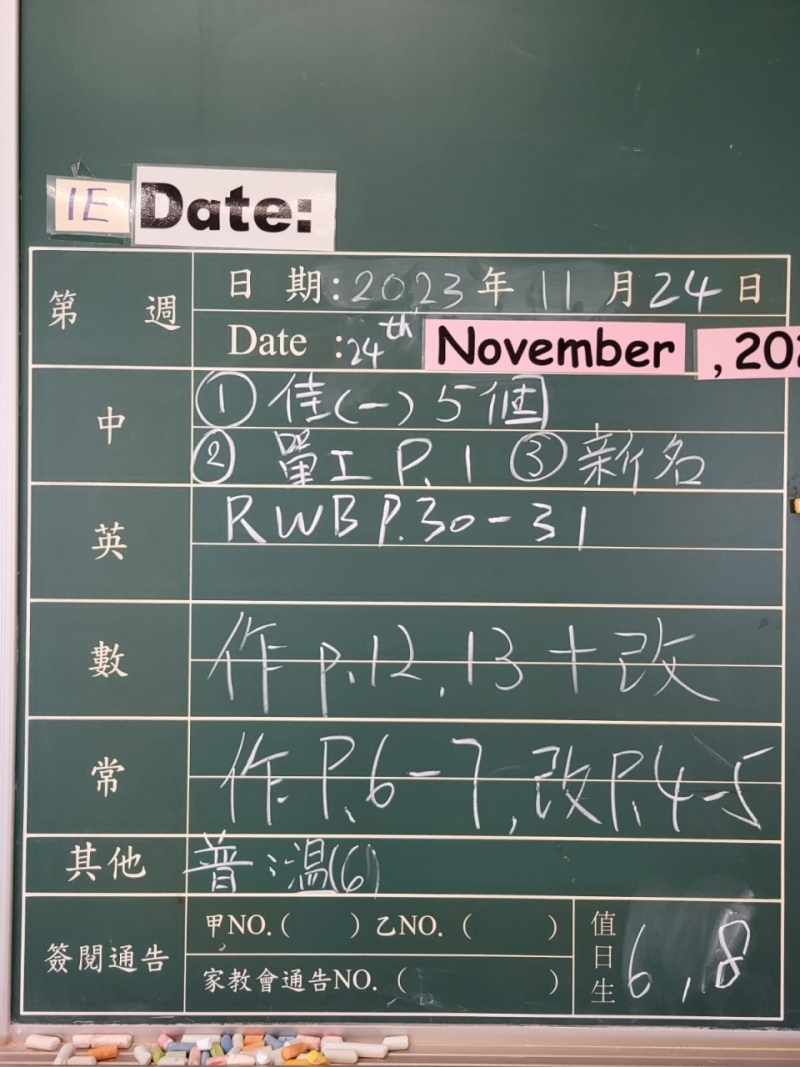 1E Date:
第 週
日 期:2023年 11月24日
Date :24th November , 202
中
①佳(一)5個
②單工 P.1 ③新名
英
RWB P.30-31
數
作 p.12,13+改
常
作.P.6-7,改P.4-5
其他
普:溫(6)
簽閱通告
甲NO.( ) 乙NO.( )
家教會通告NO.( )
值日生 6,8